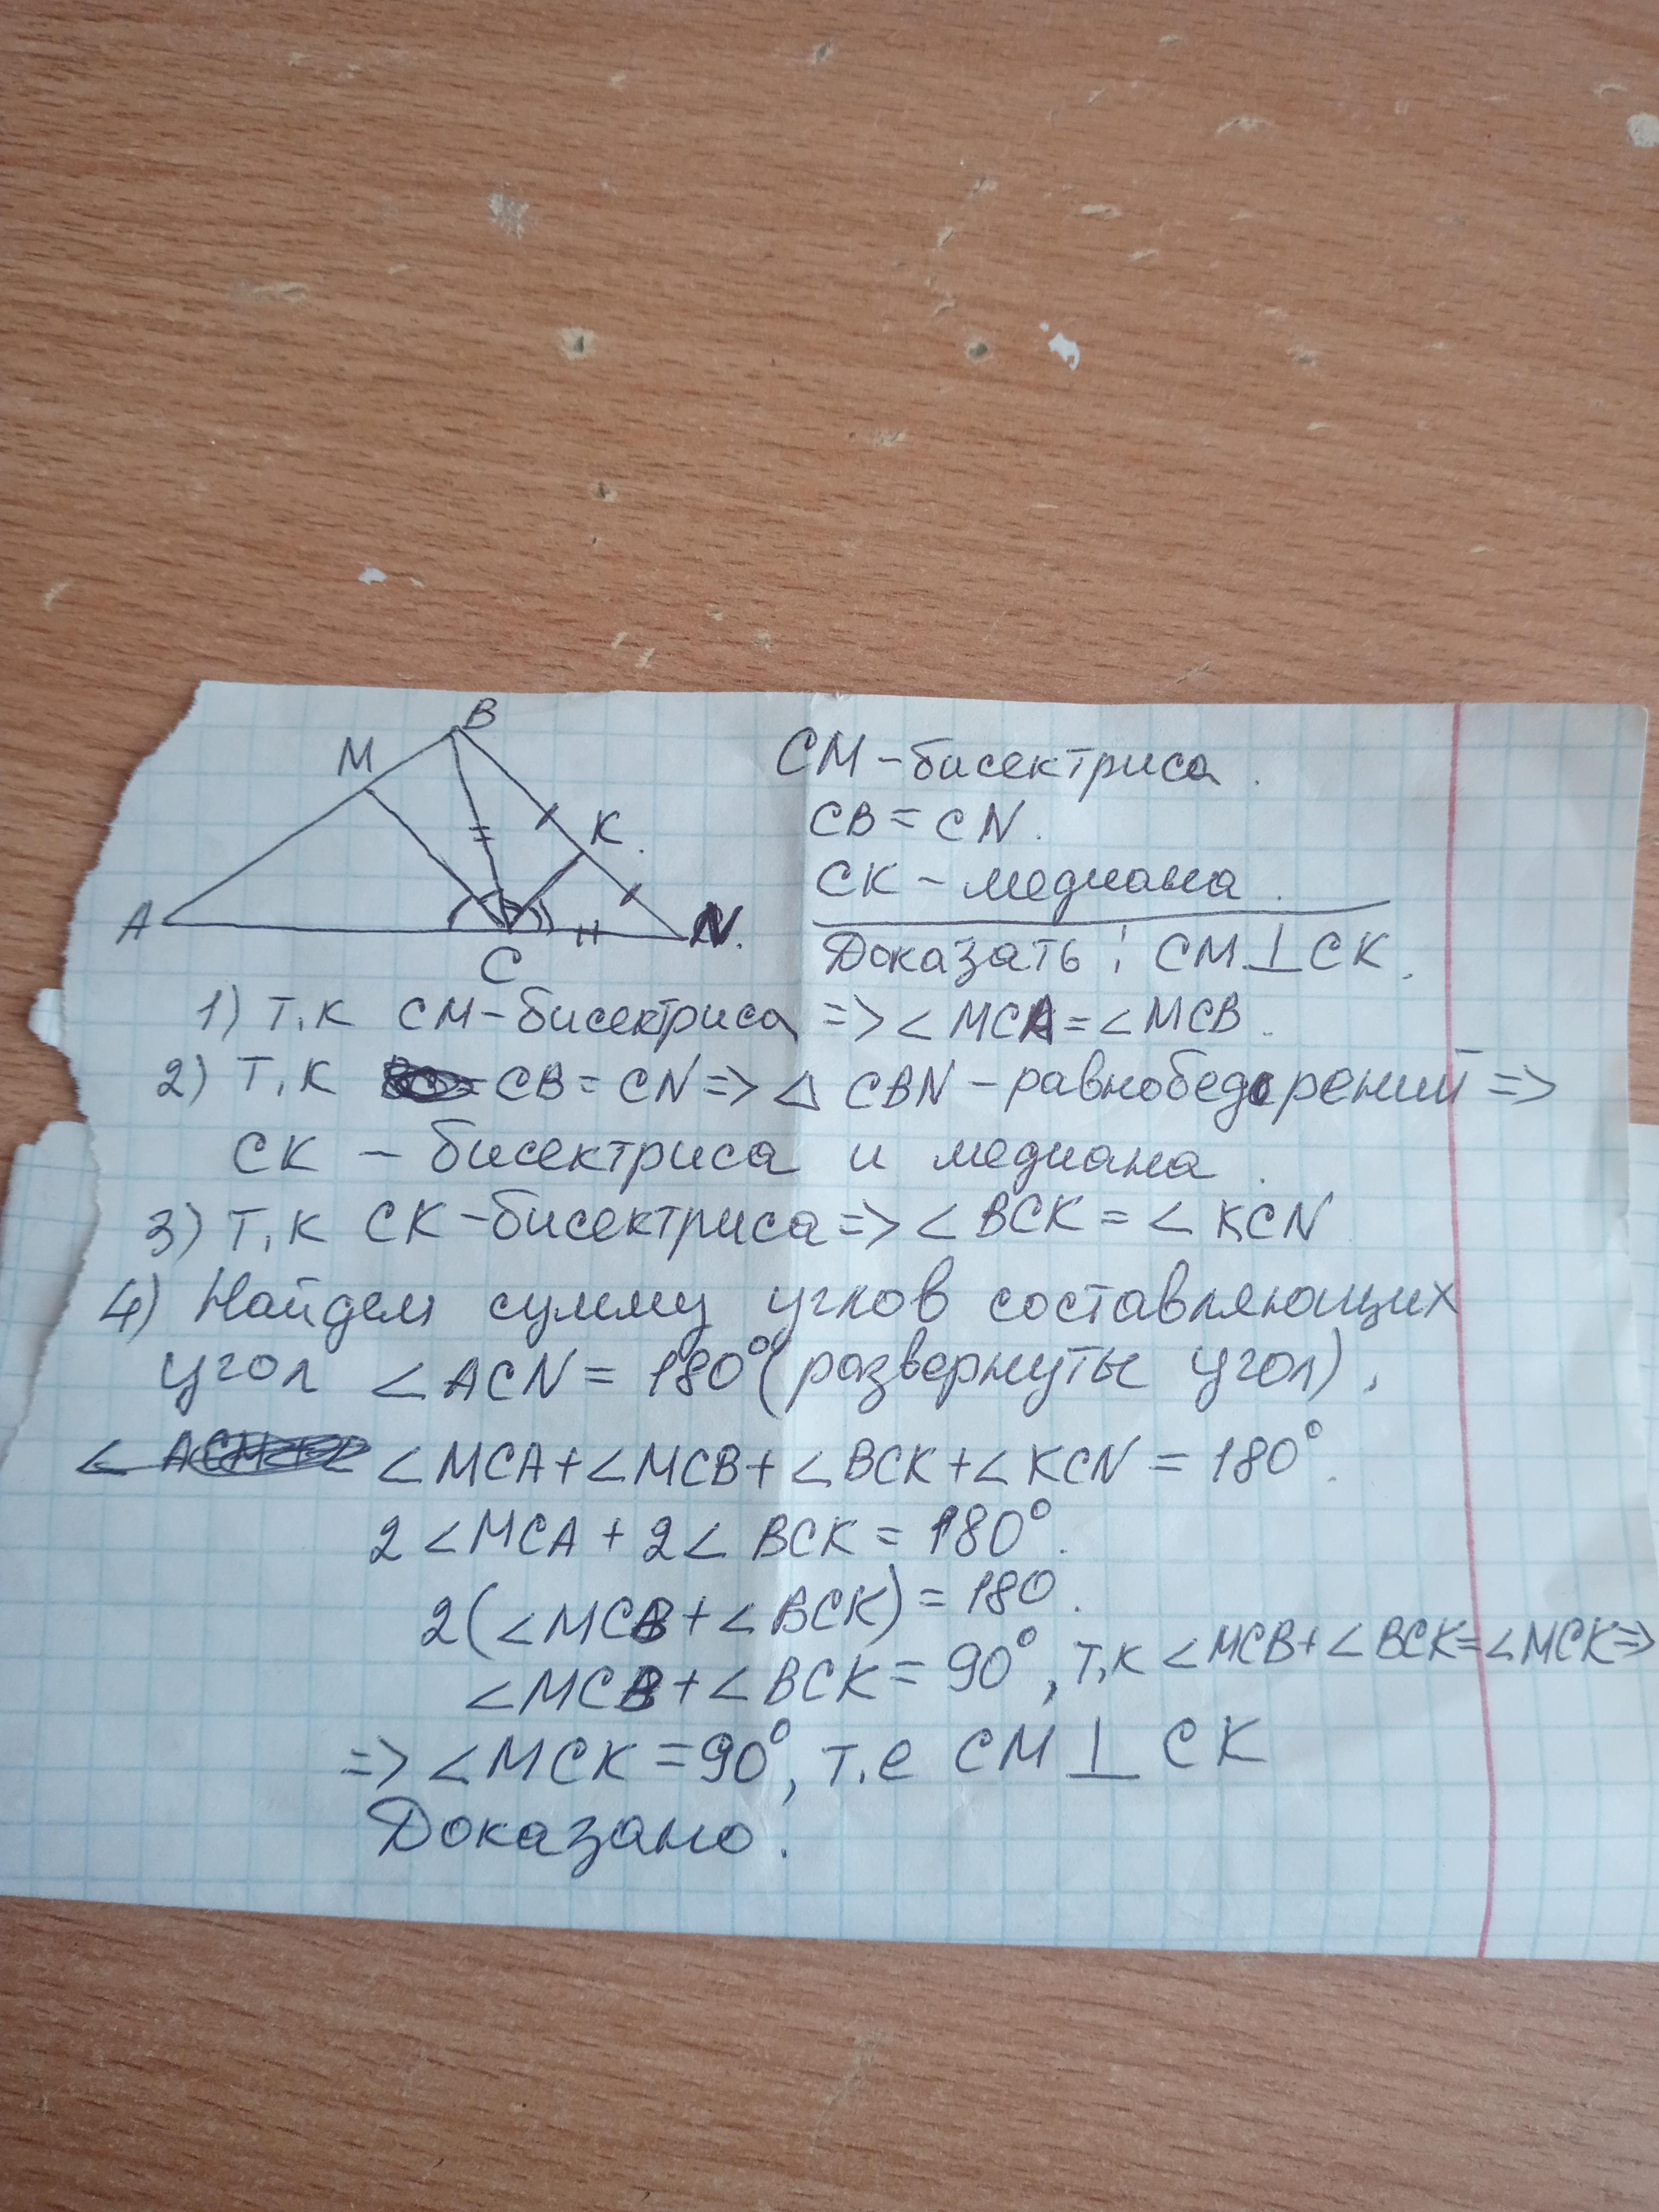 B
M
K.
A
C
N.
СМ – бисектриса.
CB = CN.
СК – медиана.
Доказать: CM ⊥ CK.
1) Т.к СМ – бисектриса => ∠MCA = ∠MCB.
2) Т.к CB = CN => △ CBN – равнобедорений =>
СК – бисектриса и медиана.
3) Т.к СК – бисектриса => ∠BCK = ∠KCN
4) Найдем сумму углов составляющих
угол ∠ACN = 180° (развернуты угол),
∠MCA + ∠MCB + ∠BCK + ∠KCN = 180°.
2∠MCA + 2∠BCK = 180°.
2(∠MCB + ∠BCK) = 180.
∠MCB + ∠BCK = 90°, т.к ∠MCB + ∠BCK = ∠MCK =>
=> ∠MCK = 90°, т.е CM ⊥ CK
Доказано.